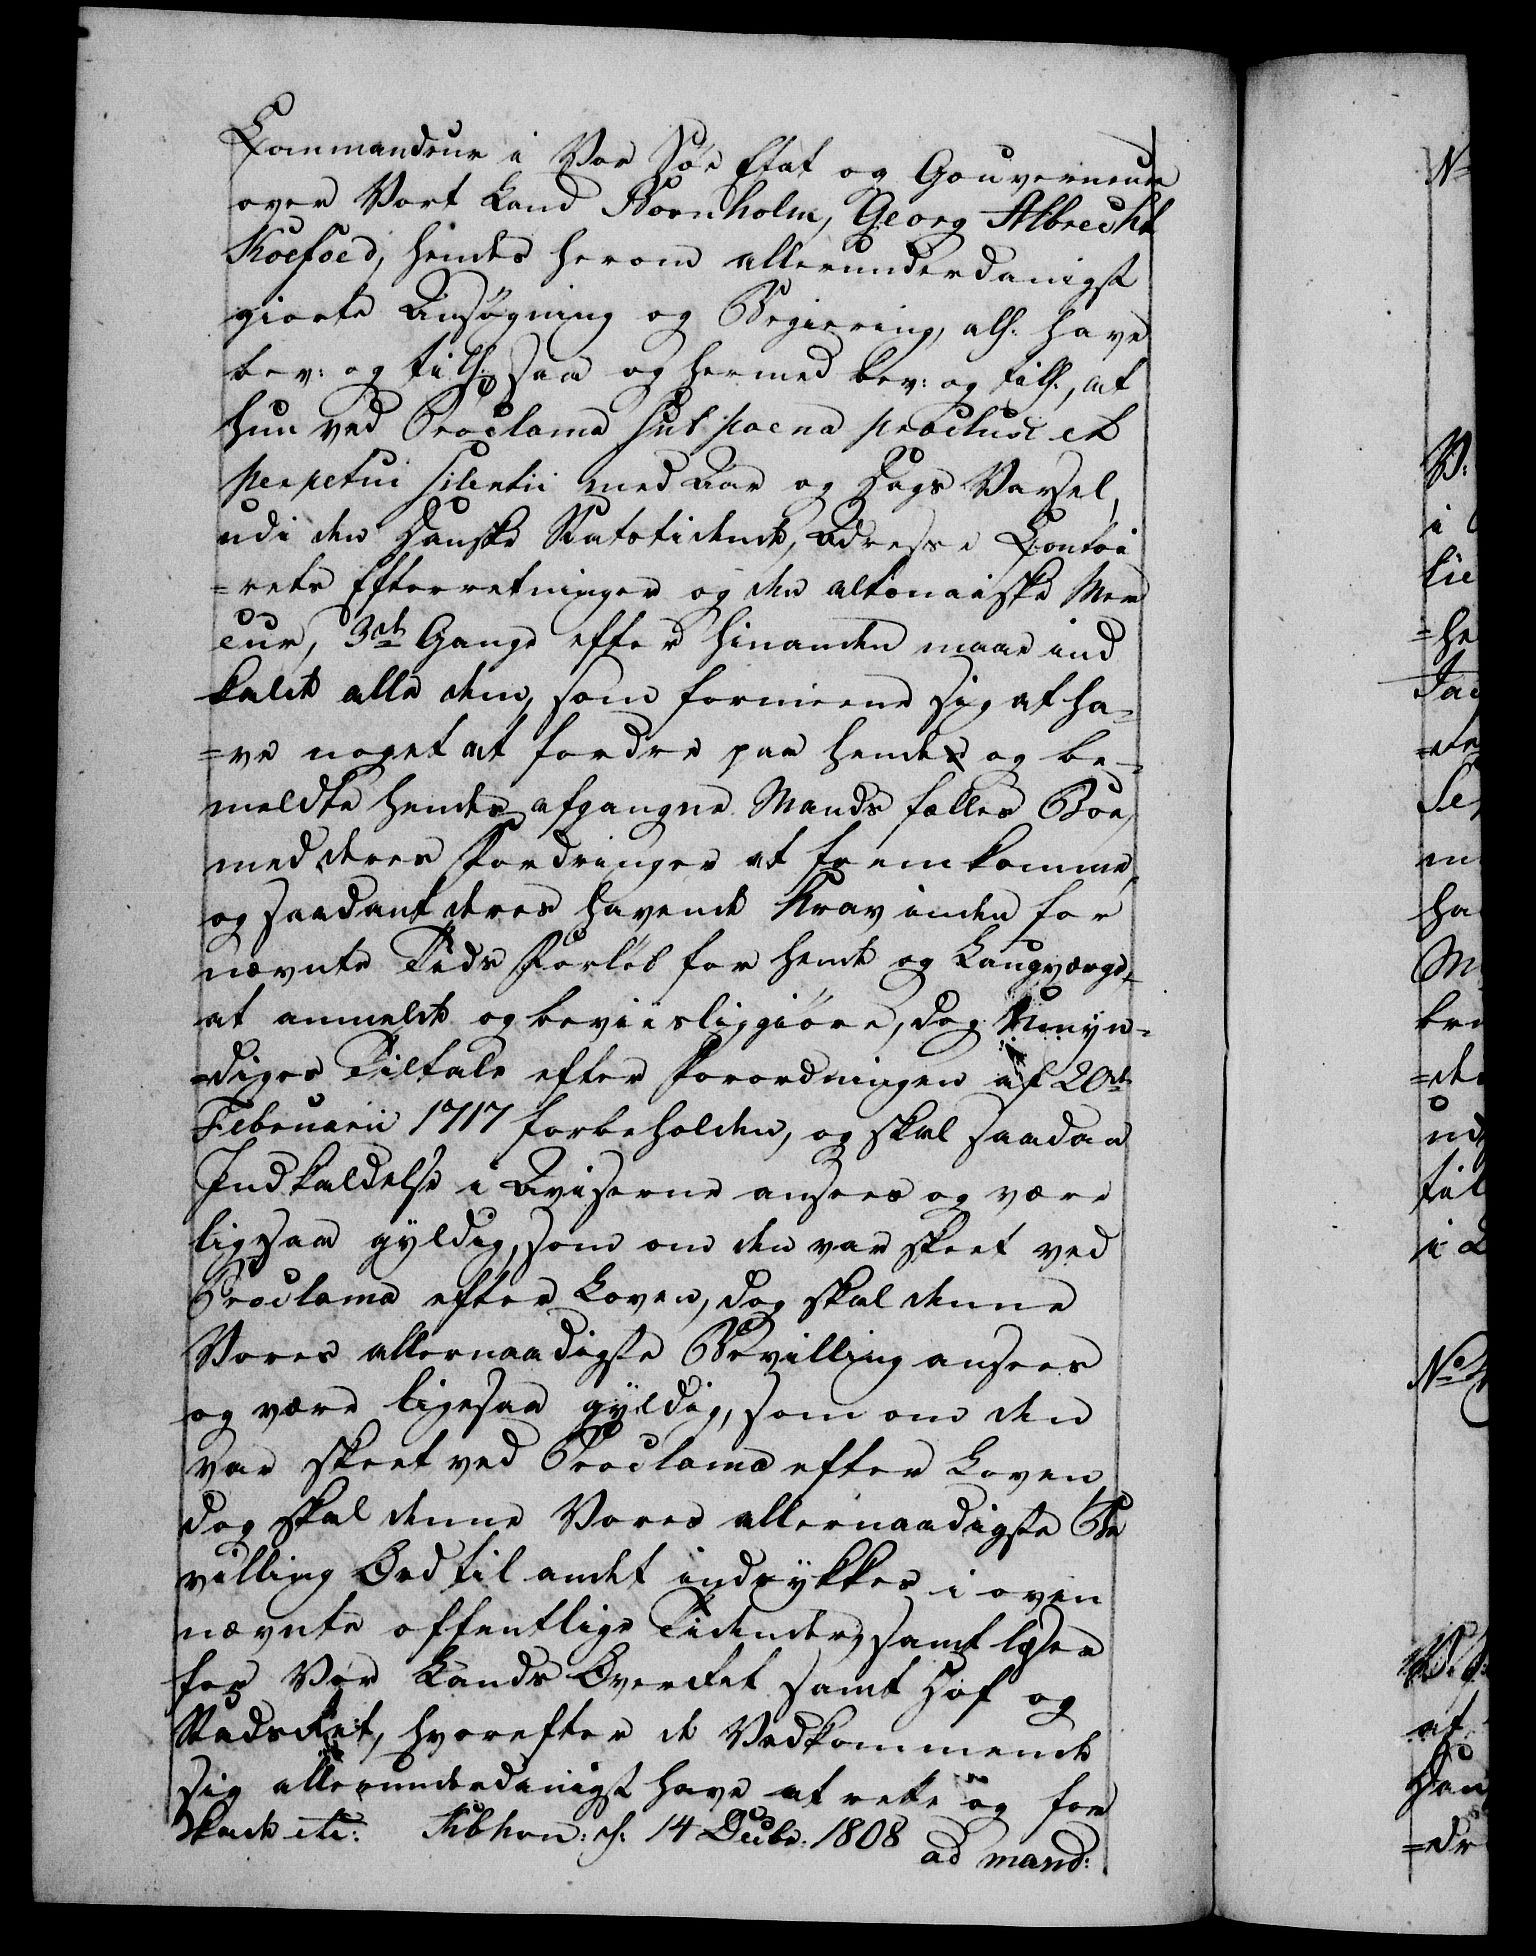 Commandeur i Vor Søe Etat og Gouverneur
over Vort Land Bornholm, Georg Albrecht
Koefoed, hendes herom allerunderdanigst
giorte Ansøgning og Begiering, alls. have
bev: og tills. saa og hermed bev: og tills., at
hun ved Proclama sub poena præclusi et
perpetui silentii med Aar og Dags Varsel,
udi den Danske Statstidende, Adresse Contoi
=rets Efterretninger og den altonaiske Mer
cur, 3de Gange efter hinanden maae ind
kalde alle dem, som formeene sig at ha=
=ve noget at fordre paa hende og be=
meldte hendes afgangne Mands fælles Boe,
med deres Fordringer at fremkomme,
og saadant deres havende Krav inden for
nævnte Tids Forløb for hende og Laugværge,
at anmelde og beviisliggiøre, dog Umyn=
=diges Tiltale efter Forordningen af 20de
Februarii 1717 forbeholden, og skal saadan
Indkaldelse i Aviserne ansees og være
ligesaa gyldig, som om den var skeet ved
Proclama efter Loven, dog skal denne
Vores allernaadigste Bevilling ansees
og være ligesaa gyldig, som om den
var skeet ved Proclama efter Loven
dog skal denne Vores allernaadigste Be
villing Ord til andet indrykkes i oven
nævnte offentlige Tidender, samt læses
for Vor Lands Overret samt Hof og
Stadsret, hvorefter de Vedkommende
sig allerunderdanigst have at rette og for
Skade etc: Kibhon: d. 14 Decbr: 1808
ad mand: